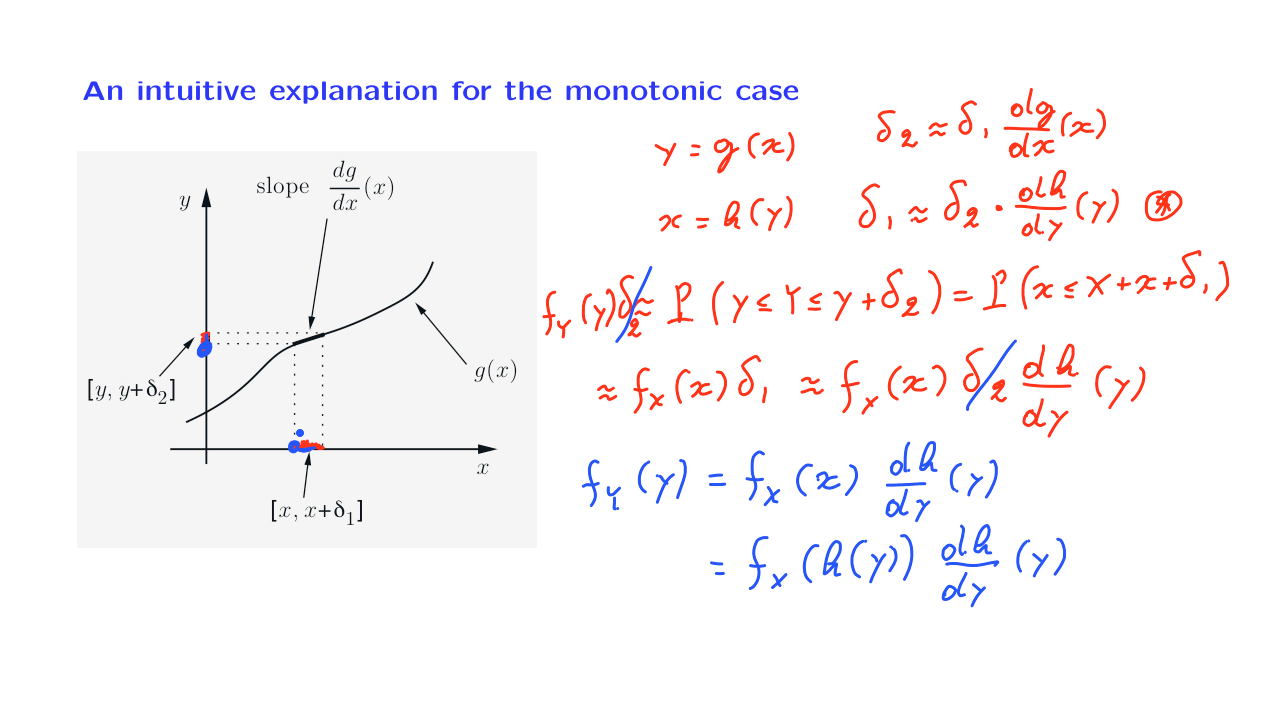 An intuitive explanation for the monotonic case
slope dg/dx (x)
y
g(x)
[y, y+δ₂]
x
[x, x+δ₁]
y = g(x)
δ₂ ≈ δ₁ dg/dx (x)
x = h(y)
δ₁ ≈ δ₂ · dh/dy (y) ⊛
f_Y(y)δ₂ ≈ P(y ≤ Y ≤ y+δ₂) = P(x ≤ X + x + δ₁)
≈ f_X(x)δ₁ ≈ f_X(x) δ₂ dh/dy (y)
f_Y(y) = f_X(x) dh/dy (y)
= f_X(h(y)) dh/dy (y)